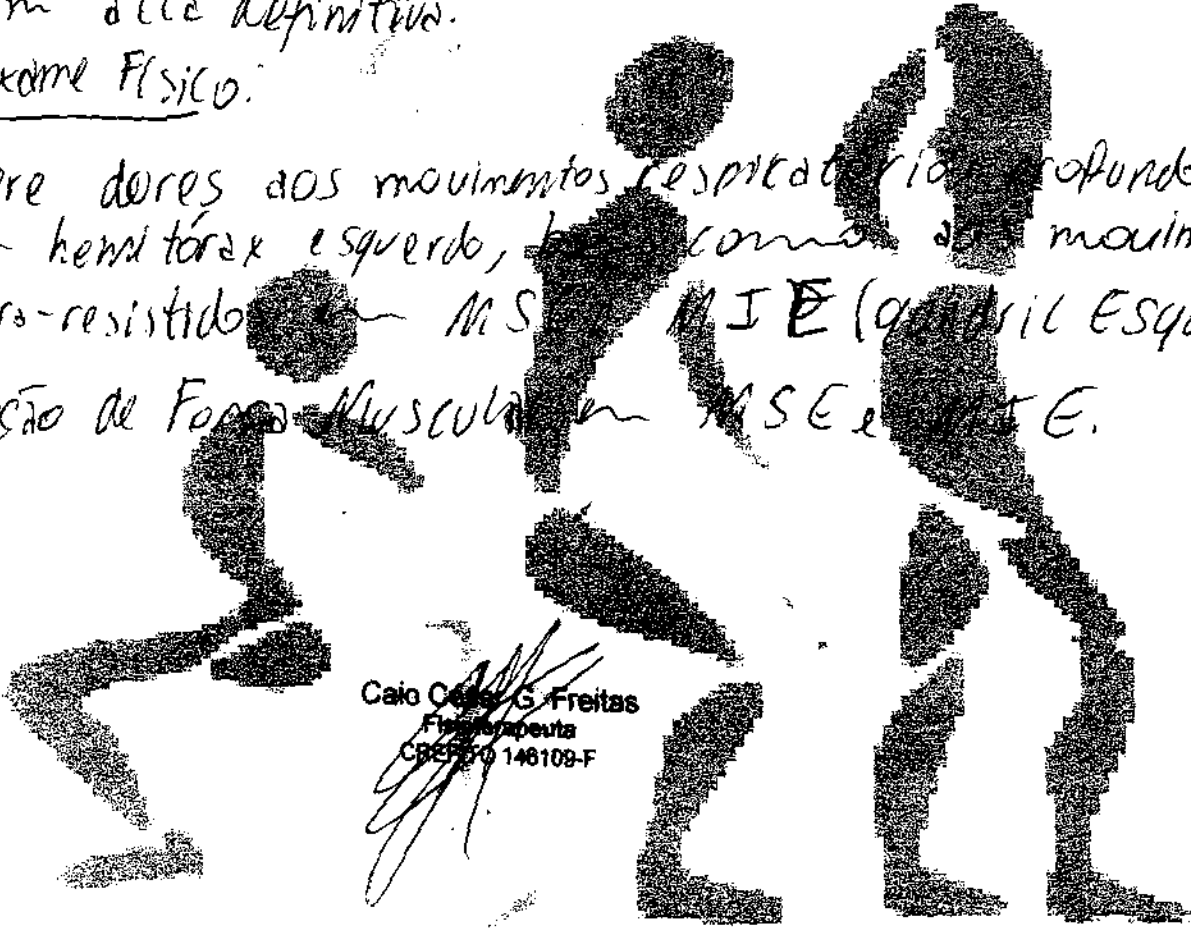 m alta definitiva.
xame Físico.
ere dores aos movimentos respiratório profundo
hemitórax esquerdo, como aos movim
ra-resistido em MS MIE (quadril Esqu
ção de Força Muscular em MSE e MIE.
Caio Cesar G. Freitas
Fisioterapeuta
CREFITO 146109-F